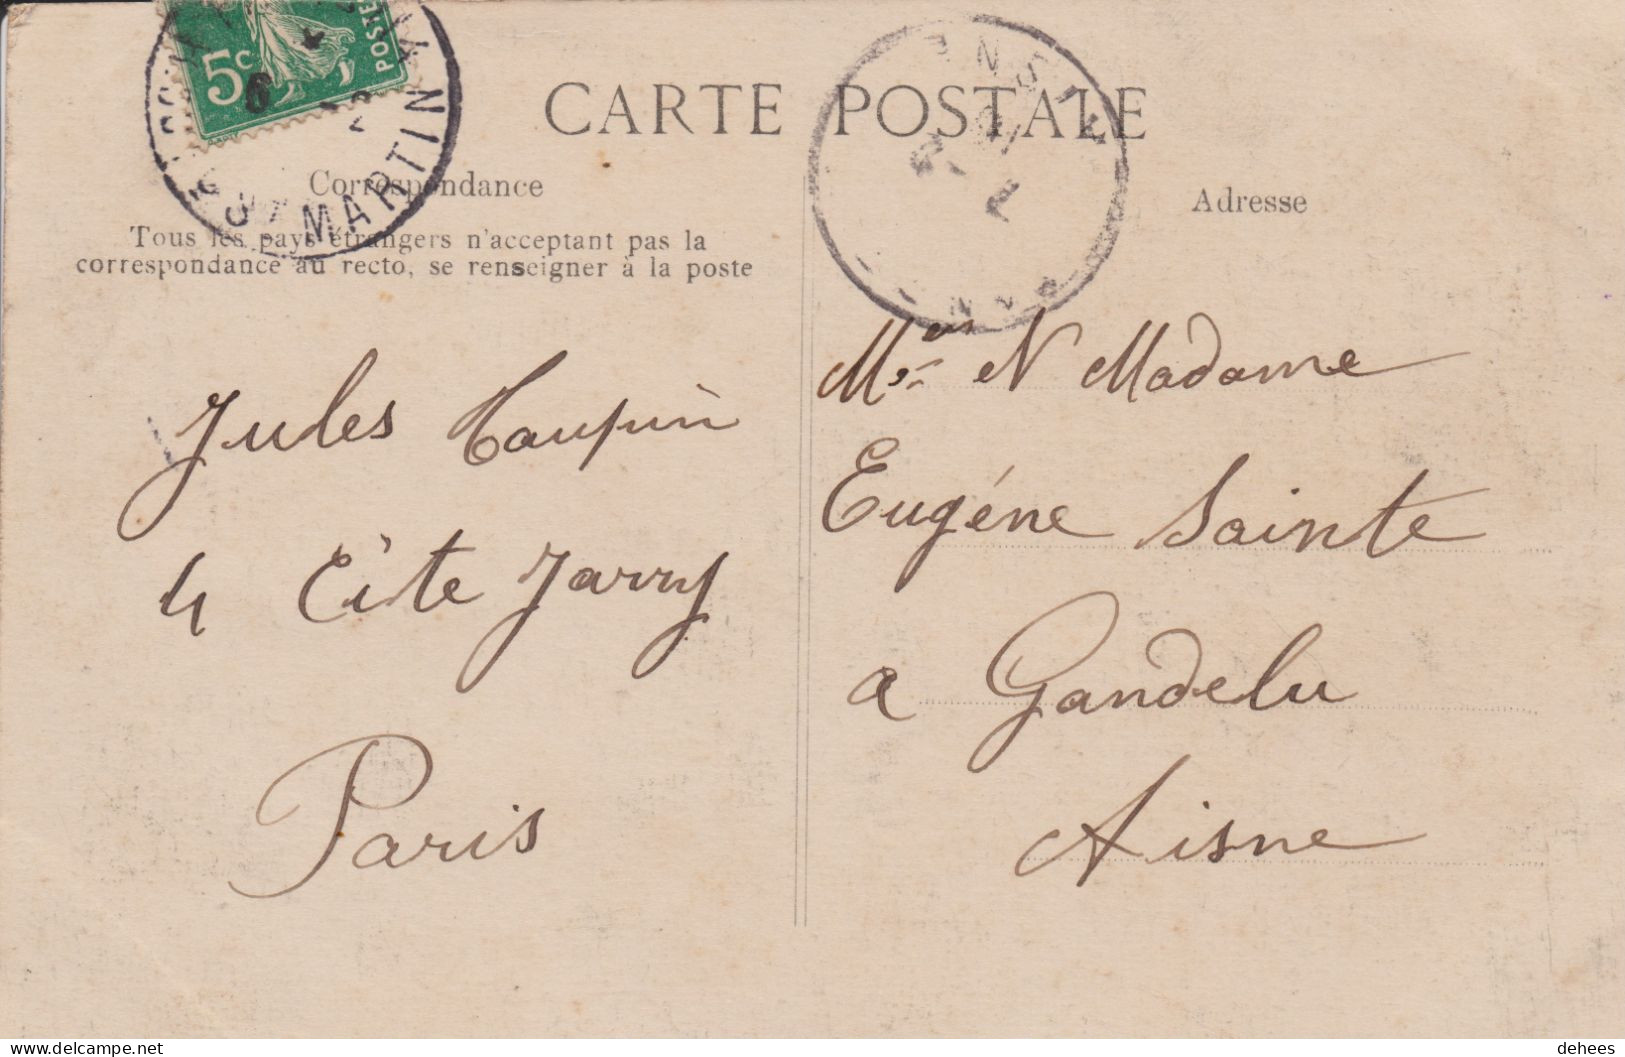 5c
POSTES
ST MARTIN
CARTE POSTALE
Correspondance
Tous les pays étrangers n'acceptant pas la
correspondance au recto, se renseigner à la poste
Jules Taupin
4 Cité Jarry
Paris
Adresse
Madame
Eugéne Sainte
a Gandelu
Aisne
dehees